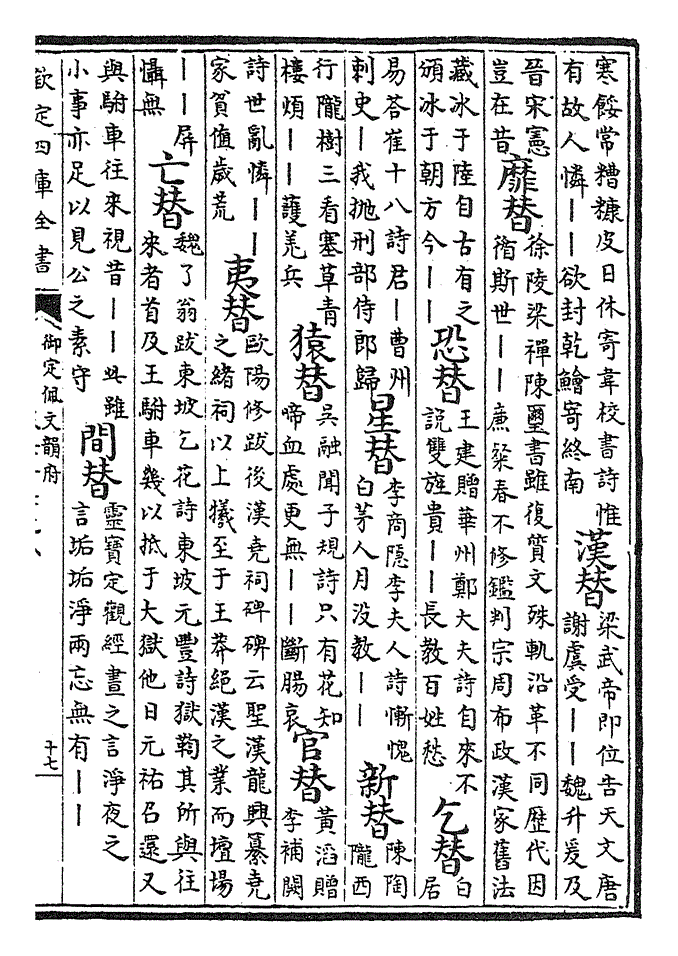 寒餒常糟糠皮日休寄韋校書詩惟
有故人憐丨丨欲封乾鱠寄終南
漢替
梁武帝即位告天文唐
謝虞受丨丨魏升爰及
晉宋憲
豈在昔
靡替
徐陵梁禪陳璽書雖復質文殊軌沿革不同歷代因
循斯世丨丨廉粲春不修鑑判宗周布政漢家舊法
藏冰于陸自古有之
頒冰于朝方今丨丨
恐替
王建贈華州鄭大夫詩自來不
説雙旌貴丨丨長教百姓愁
乞替
白
居
易答崔十八詩君丨曹州
刺史丨我抛刑部侍郎歸
星替
李商隱李夫人詩慚愧
白茅人月没教丨丨
新替
陳陶
隴西
行隴樹三看塞草青
樓煩丨丨護羌兵
猿替
吳融聞子規詩只有花知
啼血處更無丨丨斷腸哀
官替
黃滔贈
李補闕
詩世亂憐丨丨
家貧值歲荒
夷替
歐陽修跋後漢堯祠碑碑云聖漢龍興纂堯
之緒祠以上犧至于王莽絕漢之業而壇場
丨丨屏
懾無
亡替
魏了翁跋東坡乞花詩東坡元豐詩獄鞫其所與往
來者首及王駙車幾以抵于大獄他日元祐召還又
與駙車往來視昔丨丨此雖
小事亦足以見公之素守
間替
靈寶定觀經晝之言淨夜之
言垢垢淨兩忘無有丨丨
欽定四庫全書
御定佩文韻府
十七